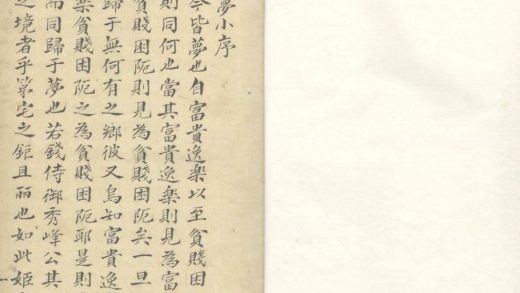 夢小序
今皆夢也自富貴逸樂以至貧賤困
則同何也當其富貴逸樂則見為富
貧賤困阨則見為貧賤困阨矣一旦
歸于無何有之鄉彼又烏知富貴逸
樂貧賤困阨之為貧賤困阨耶是則
而同歸于夢也若錢侍御秀峰公其
之境者乎第宅之鉅且麗也如此姬